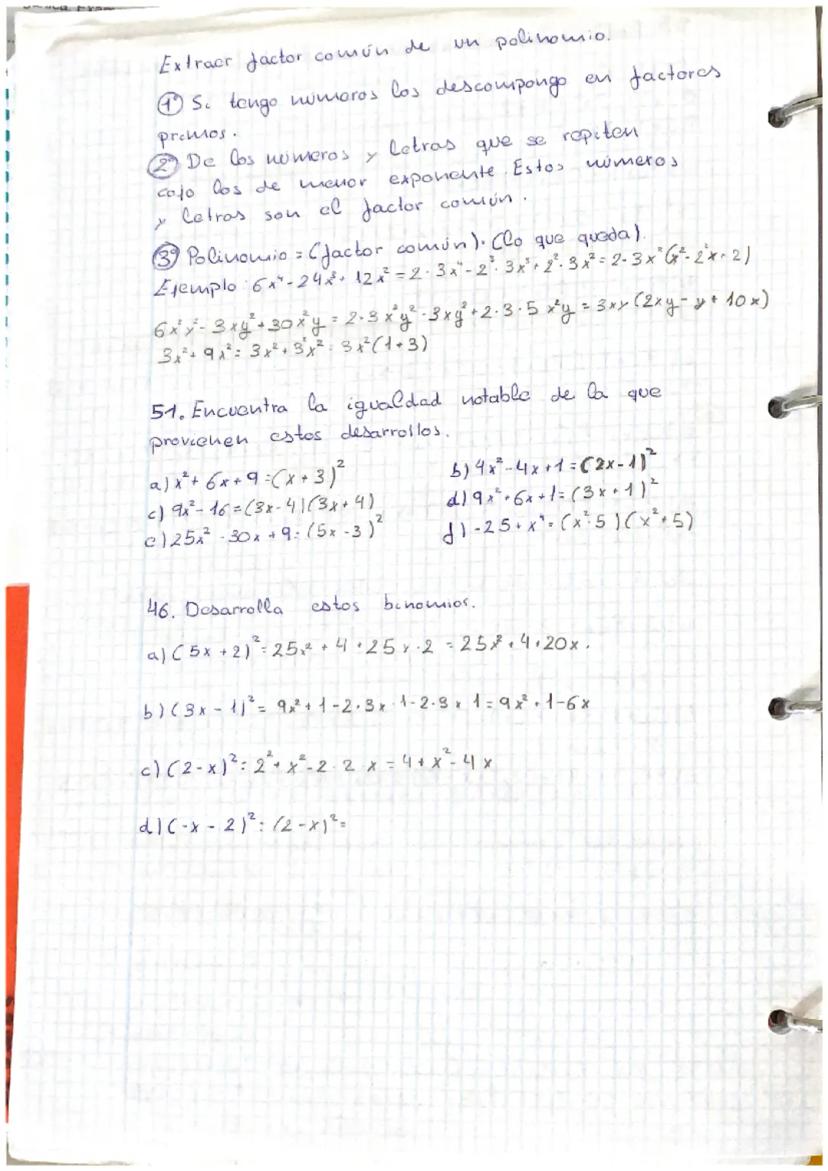 Extraer factor común de un polinomio.
1º Si tengo números los descompongo en factores
primos.
2º De los números y letras que se repiten
cojo los de menor exponente. Estos números
y letras son el factor común.
3º Polinomio = (factor común)·(lo que queda).
Ejemplo: 6x⁴-24x³+12x² = 2·3x⁴-2³·3x³+2²·3x² = 2·3x²(x²-2²x+2)
6x²y²-3xy²+30x²y = 2·3x²y²-3xy²+2·3·5x²y = 3xy(2xy-y+10x)
3x²+9x² = 3x²+3²x² = 3x²(1+3)
51. Encuentra la igualdad notable de la que
provienen estos desarrollos.
a) x²+6x+9=(x+3)² b) 4x²-4x+1=(2x-1)²
c) 9x²-16=(3x-4)(3x+4) d) 9x²+6x+1=(3x+1)²
e) 25x²-30x+9=(5x-3)² f) -25+x⁴=(x²-5)(x²+5)
46. Desarrolla estos binomios.
a) (5x+2)²=25x²+4+25x·2=25x²+4+20x.
b) (3x-1)²=9x²+1-2·3x·1-2·3x·1=9x²+1-6x
c) (2-x)²=2²+x²-2·2·x=4+x²-4x
d) (-x-2)²=(2-x)²=